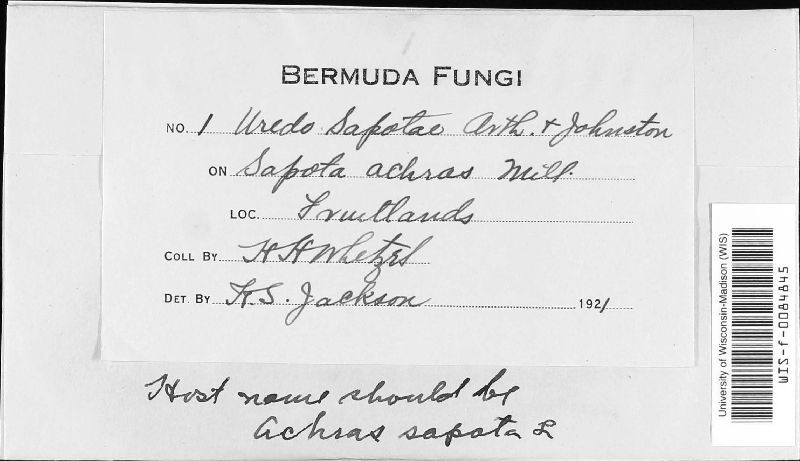 BERMUDA FUNGI
NO. 1 Uredo Sapotae Arth. & Johnston
ON Sapota achras Mill.
LOC. Fruitlands
COLL BY H H Whetzel
DET. BY H.S. Jackson 1921
Host name should be
Achras sapota L
University of Wisconsin-Madison (WIS)
WIS-f-0084845